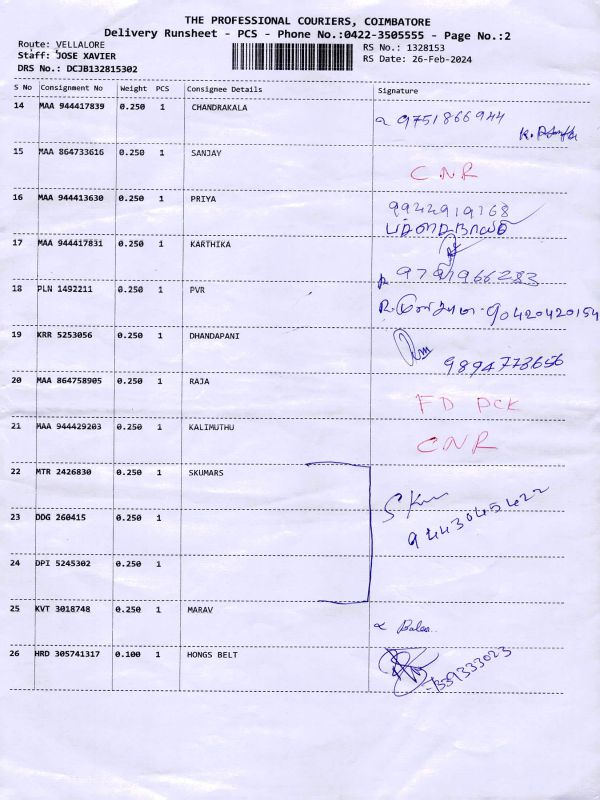 THE PROFESSIONAL COURIERS, COIMBATORE
Delivery Runsheet - PCS - Phone No.:0422-3505555 - Page No.:2
Route: VELLALORE
Staff: JOSE XAVIER
DRS No.: DCJB132815302
RS No.: 1328153
RS Date: 26-Feb-2024
S No Consignment No Weight PCS Consignee Details Signature
14 MAA 944417839 0.250 1 CHANDRAKALA 9751866944
15 MAA 864733616 0.250 1 SANJAY CNR
16 MAA 944413630 0.250 1 PRIYA 9942919768
17 MAA 944417831 0.250 1 KARTHIKA 9791966283
18 PLN 1492211 0.250 1 PVR 90420420154
19 KRR 5253056 0.250 1 DHANDAPANI 9894773656
20 MAA 864758905 0.250 1 RAJA FD PCK
21 MAA 944429203 0.250 1 KALIMUTHU CNR
22 MTR 2426830 0.250 1 SKUMARS
23 DDG 260415 0.250 1 9443045622
24 DPI 5245302 0.250 1
25 KVT 3018748 0.250 1 MARAV
26 HRD 305741317 0.100 1 HONGS BELT